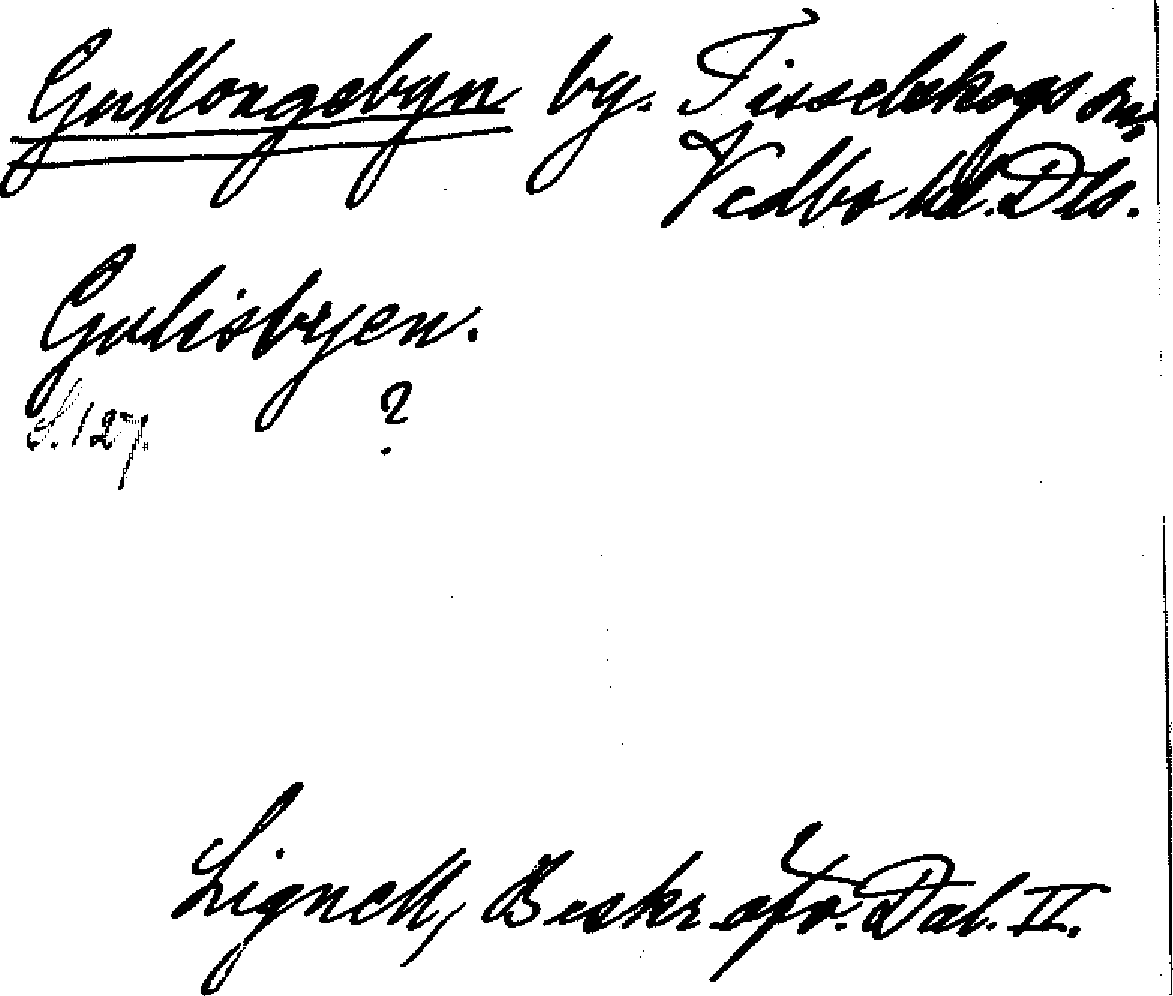 Gullongebyn by. Tisselskogs sn,
Vedbo hd. Dls.
Gulisbyen.
S. 127. ?
Lignell, Beskr. öfv. Dal. II.